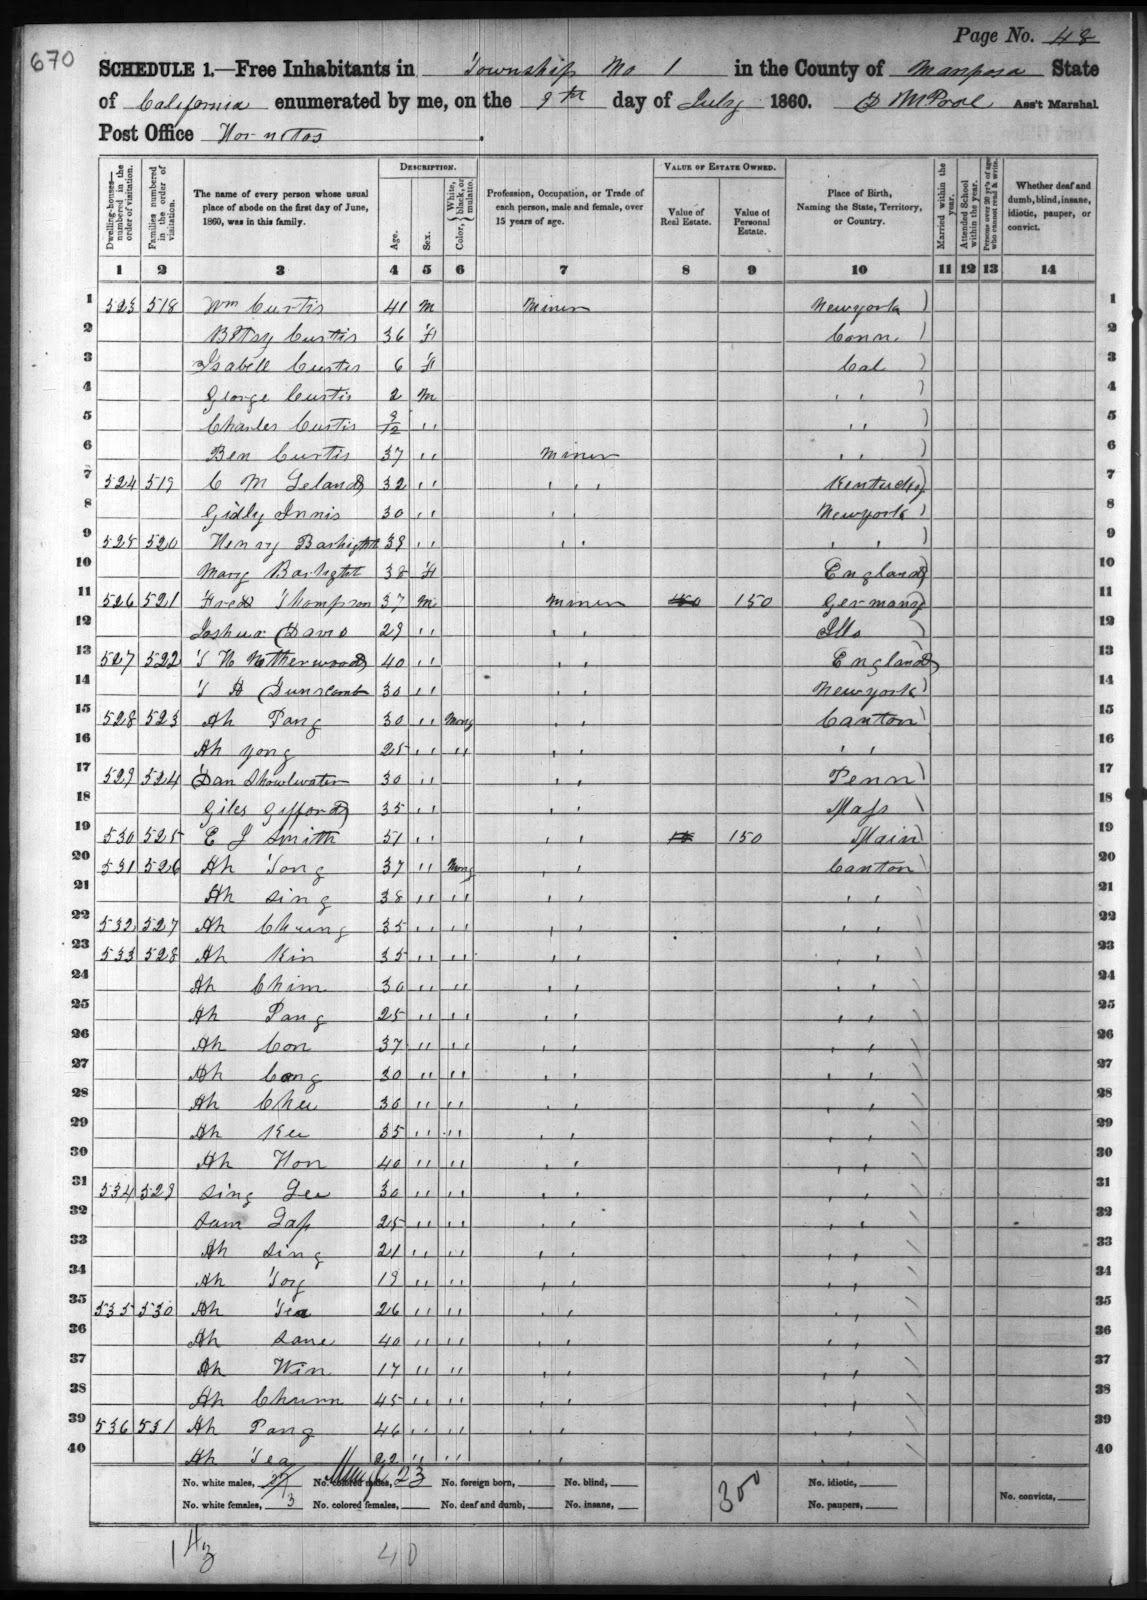 670
Page No. 48
SCHEDULE 1.—Free Inhabitants in Township No 1 in the County of Mariposa State
of California enumerated by me, on the 9th day of July 1860. Ass't Marshal.
Post Office Hornitos.
Dwelling-houses—numbered in the order of visitation. Families numbered in the order of visitation. The name of every person whose usual place of abode on the first day of June, 1860, was in this family. DESCRIPTION. Age. Sex. Color, { White, black, or mulatto. Profession, Occupation, or Trade of each person, male and female, over 15 years of age. VALUE OF ESTATE OWNED. Value of Real Estate. Value of Personal Estate. Place of Birth, Naming the State, Territory, or Country. Married within the year. Attended School within the year. Persons over 20 y'rs of age who cannot read & write. Whether deaf and dumb, blind, insane, idiotic, pauper, or convict.
1 2 3 4 5 6 7 8 9 10 11 12 13 14
1 523 518 Wm Curtis 41 m Miner Newyork 1
2 Betsy Curtis 36 f Conn. 2
3 Isabell Curtis 6 f Cal 3
4 George Curtis 2 m " 4
5 Charles Curtis 9/12 " " 5
6 Ben Curtis 37 " Miner " 6
7 524 519 C M Leland 32 " " Kentucky 7
8 Gidly Innis 30 " " Newyork 8
9 525 520 Henry 39 " " " 9
10 Mary 38 f England 10
11 526 521 Fred Thompson 37 m Miner 150 150 Germany 11
12 Joshua David 29 " " Ills 12
13 527 522 T H Netherwood 40 " " England 13
14 T H Dunscomb 30 " " Newyork 14
15 528 523 Ah Pang 30 " Mong " Canton 15
16 Ah Yong 25 " " " " 16
17 529 524 Dan Showlwater 30 " " Penn 17
18 Giles Gifford 35 " " Mass 18
19 530 525 E J Smith 51 " " 150 Main 19
20 531 526 Ah Tong 37 " Mong " Canton 20
21 Ah Sing 38 " " " " 21
22 532 527 Ah Chung 35 " " " " 22
23 533 528 Ah Kin 35 " " " " 23
24 Ah Chim 30 " " " " 24
25 Ah Pang 25 " " " " 25
26 Ah Con 37 " " " " 26
27 Ah Cong 30 " " " " 27
28 Ah Chee 30 " " " " 28
29 Ah Kee 35 " " " " 29
30 Ah Hon 40 " " " " 30
31 534 529 Sing Gee 30 " " " " 31
32 Sam 25 " " " " 32
33 Ah Sing 21 " " " " 33
34 Ah Toy 19 " " " " 34
35 535 530 Ah Tea 26 " " " " 35
36 Ah Sane 40 " " " " 36
37 Ah Win 17 " " " " 37
38 Ah Chum 45 " " " " 38
39 536 531 Ah Pang 46 " " " " 39
40 Ah Tea 22 " " " " 40
No. white males, No. colored males, 23 No. foreign born, No. blind, 300 No. idiotic,
No. white females, 3 No. colored females, No. deaf and dumb, No. insane, No. paupers, No. convicts,
40